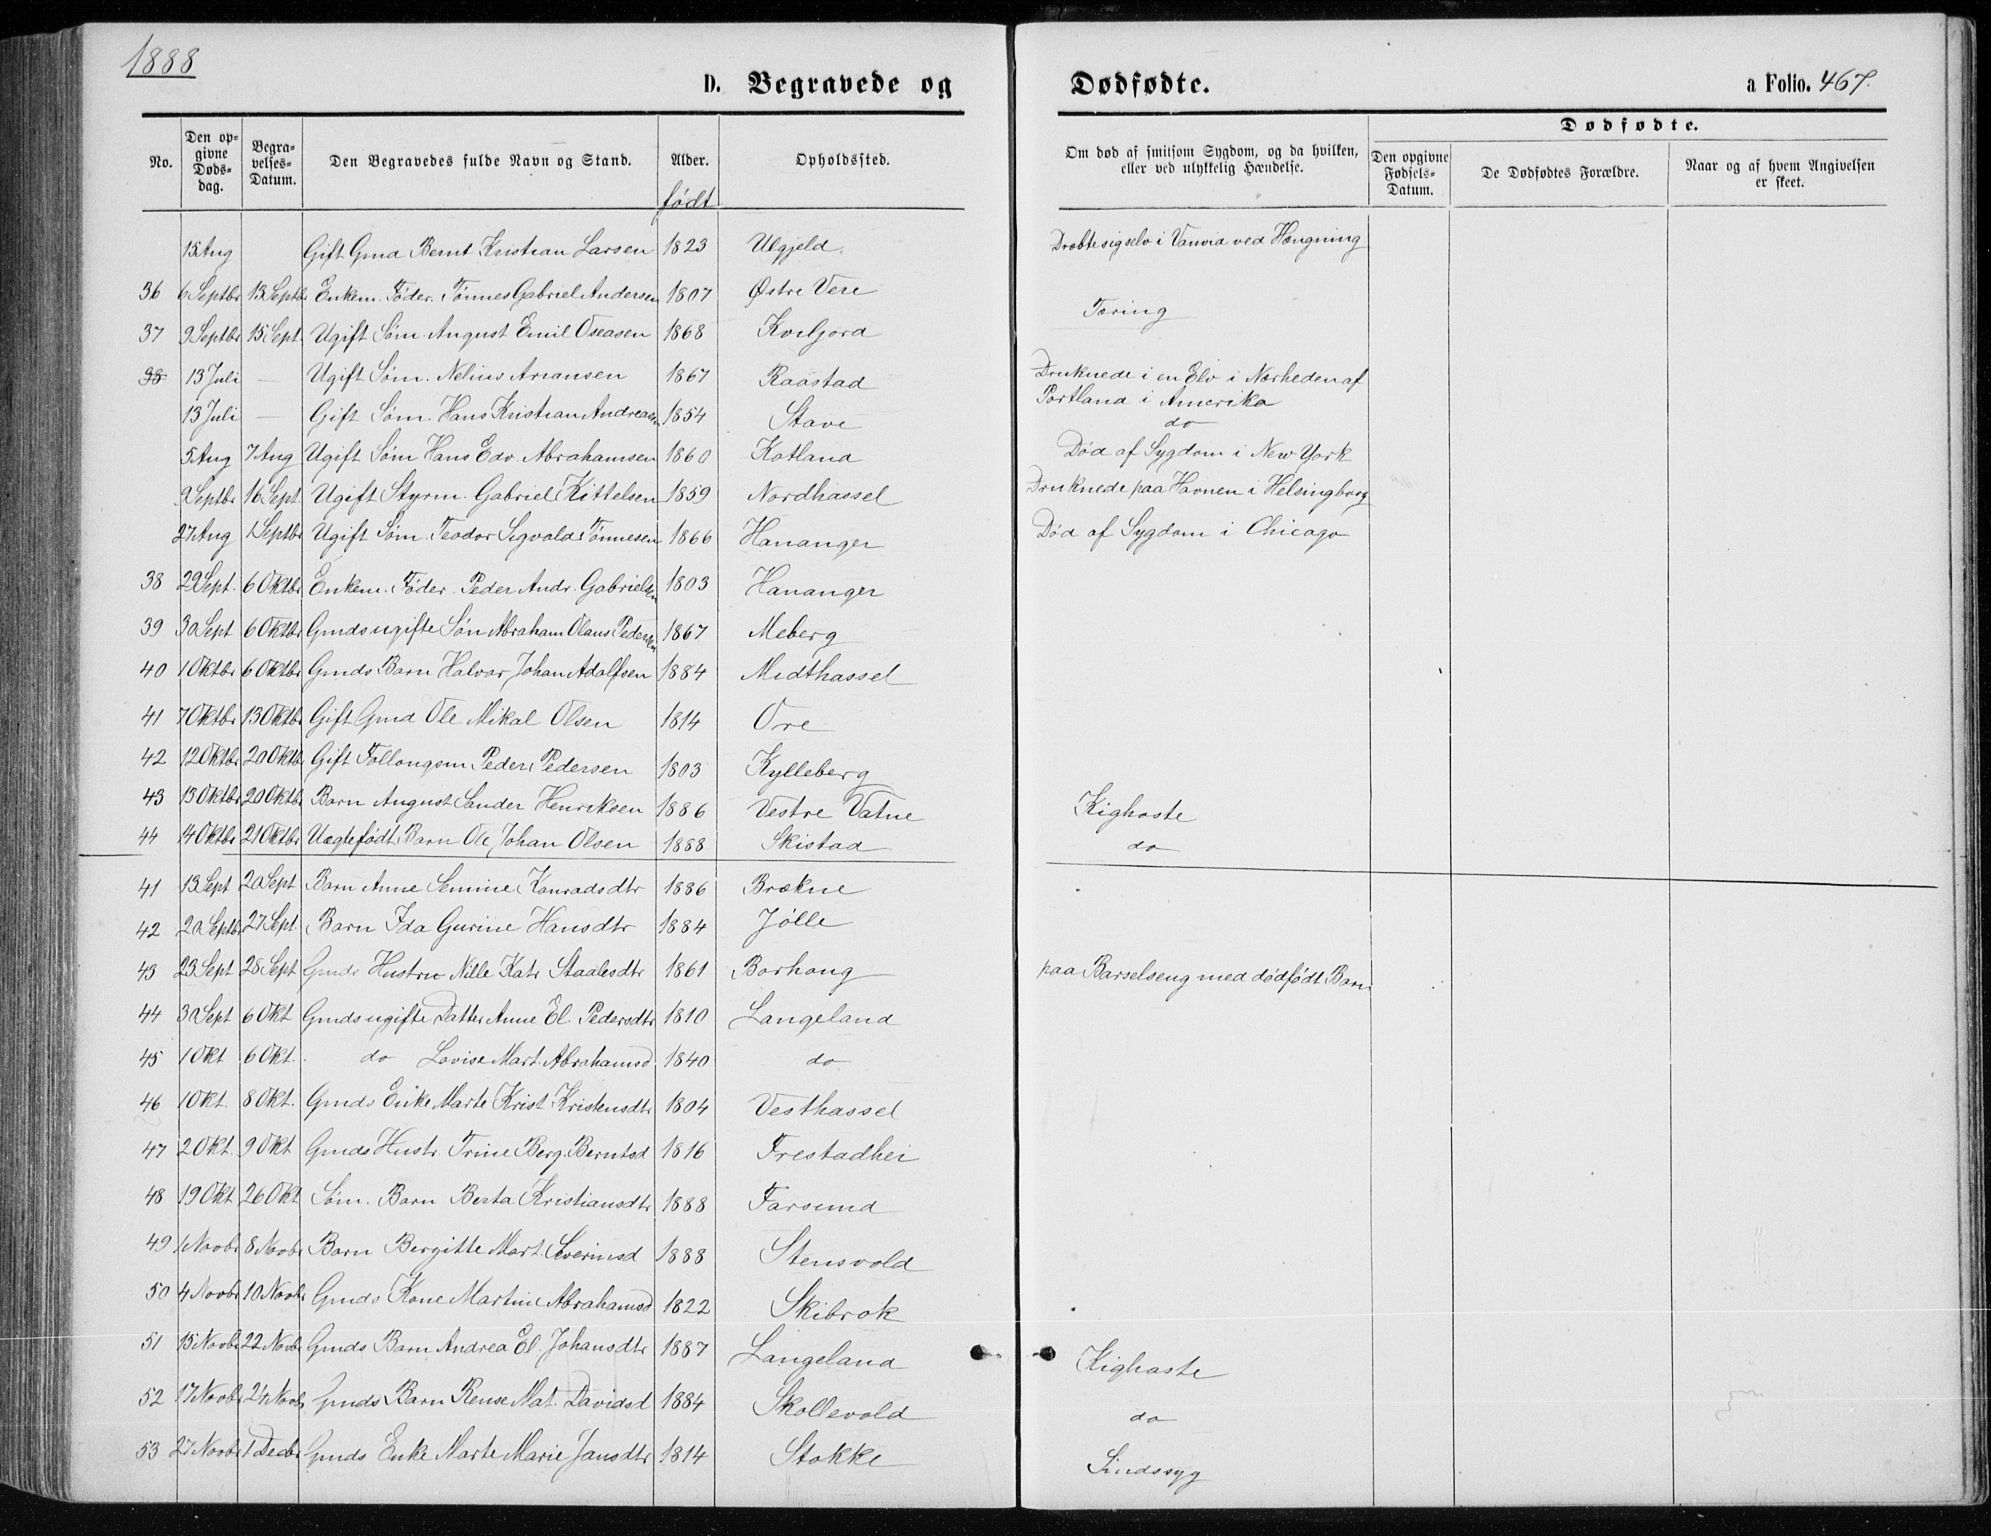 1888
D. Begravede og Dødfødte. a Folio. 467.
No. Den opgivne Dødsdag. Begravelses-Datum. Den Begravedes fulde Navn og Stand. Alder. født Opholdssted. Om død af smitsom Sygdom, og da hvilken, eller ved ulykkelig Hændelse. Dødfødte. Den opgivne Fødsels-Datum. De Dødfødtes Forældre. Naar og af hvem Angivelsen er skeet.
15 Aug Gift Gmd Bernt Kristian Larsen 1823 Ulgjeld Dræbte sig selv i Vanvid ved Hængning
36 6 Septbr 13 Septbr Enkem. Føder. Tønnes Gabriel Andersen 1807 Østre Vere
37 9 Septbr 15 Sept. Ugift Søm. August Emil Oseasen 1868 Kviljord Tæring
38 13 Juli — Ugift Søm. Nelius Ariansen 1867 Raastad Druknede i en Elv i Nærheden af
Portland i Amerika
13 Juli — Gift Søm. Hans Kristian Andreasen 1854 Stave do
5 Aug 7 Aug Ugift Søm Hans Edv. Abrahamsen 1860 Katland Død af Sygdom i New York
9 Septbr 16 Sept Ugift Styrm. Gabriel Kittelsen 1859 Nordhassel Druknede paa Havnen i Helsingborg
27 Aug 1 Septbr Ugift Søm. Teodor Sigvald Tønnesen 1866 Hananger Død af Sygdom i Chicago
38 29 Sept. 6 Oktbr Enkem. Føder. Peder Andr. Gabrielsen 1803 Hananger
39 30 Sept 6 Oktbr Gmds ugifte Søn Abraham Olaus Pedersen 1867 Meberg
40 1 Oktbr 6 Oktbr Gmds Barn Halvor Johan Adolfsen 1884 Midthassel
41 7 Oktbr 13 Oktbr Gift Gmd Ole Mikal Olsen 1814 Ore
42 12 Oktbr 20 Oktbr Gift Follougsm Peder Pedersen 1803 Kylleberg
43 13 Oktbr 20 Oktbr Barn August Sander Henriksen 1886 Vestre Vatne Kighoste
44 14 Oktbr 21 Oktbr Uægtefødt Barn Ole Johan Olsen 1888 Skistad do
41 13 Sept 20 Sept Barn Anne Semine Konradsdtr 1886 Brækne
42 20 Septbr 27 Sept. Barn Ida Gurine Hansdtr 1884 Jølle
43 23 Sept 28 Sept Gmds Hustru Nille Katr Staalesdtr 1861 Borhaug paa Barselseng med dødfødt Barn
44 30 Sept 6 Okt Gmds ugifte Datter Anne El. Pedersdtr 1810 Langeland
45 1 Okt 6 Okt. do Lovise Mart. Abrahamsd. 1840 do
46 1 Okt. 8 Okt. Gmds Enke Marte Krist Kristensdtr 1804 Vesthassel
47 2 Okt. 9 Okt Gmds Hustr Trine Berg. Berntsd 1816 Frestadhei
48 19 Okt. 26 Okt Søm. Barn Berta Kristiansdtr 1888 Farsund
49 1 Novbr 8 Novbr Barn Bergitte Mart. Severinsd 1888 Stensvold
50 4 Novbr 10 Novbr Gmds Kone Martine Abrahamsd 1822 Skibrok
51 15 Novbr 22 Novbr Gmds Barn Andrea El. Johansdtr 1887 Langeland Kighoste
52 17 Novbr 24 Novbr Gmds Barn Rense Mat. Davidsd 1884 Skollevold do
53 27 Novbr 1 Decbr Gmds Enke Marte Marie Jansdtr 1814 Stokke Sindssyg